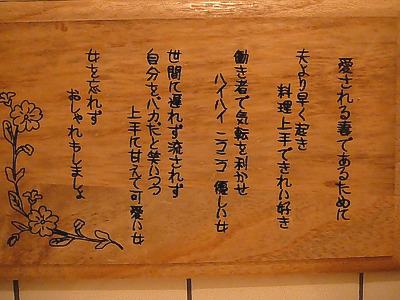 愛される妻であるために
夫より早く起き
料理上手できれい好き
働き者で気転を利かせ
ハイハイ ニコニコ 優しい女
世間に遅れず流されず
自分をバカだと笑いつつ
上手に甘えて可愛い女
女を忘れず
おしゃれもしましょ